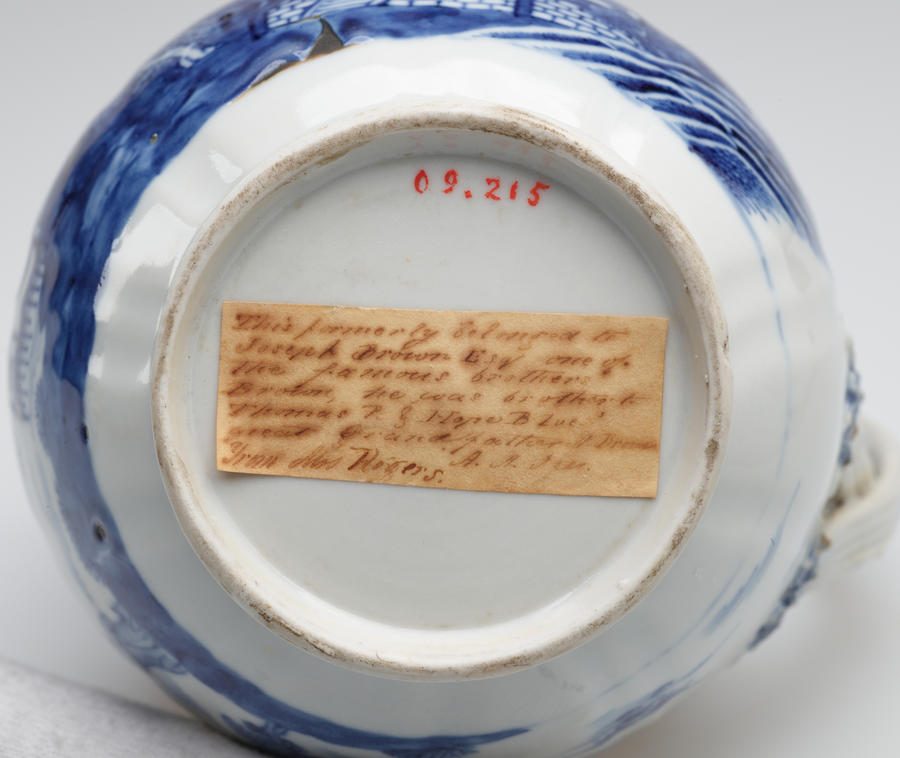 09.215
This formerly belonged to
Joseph Brown Esqr one of
the famous brothers
Brown, he was brother to
Thomas P. & Hope B
great Grandfather J Brown
From Mrs Rogers.